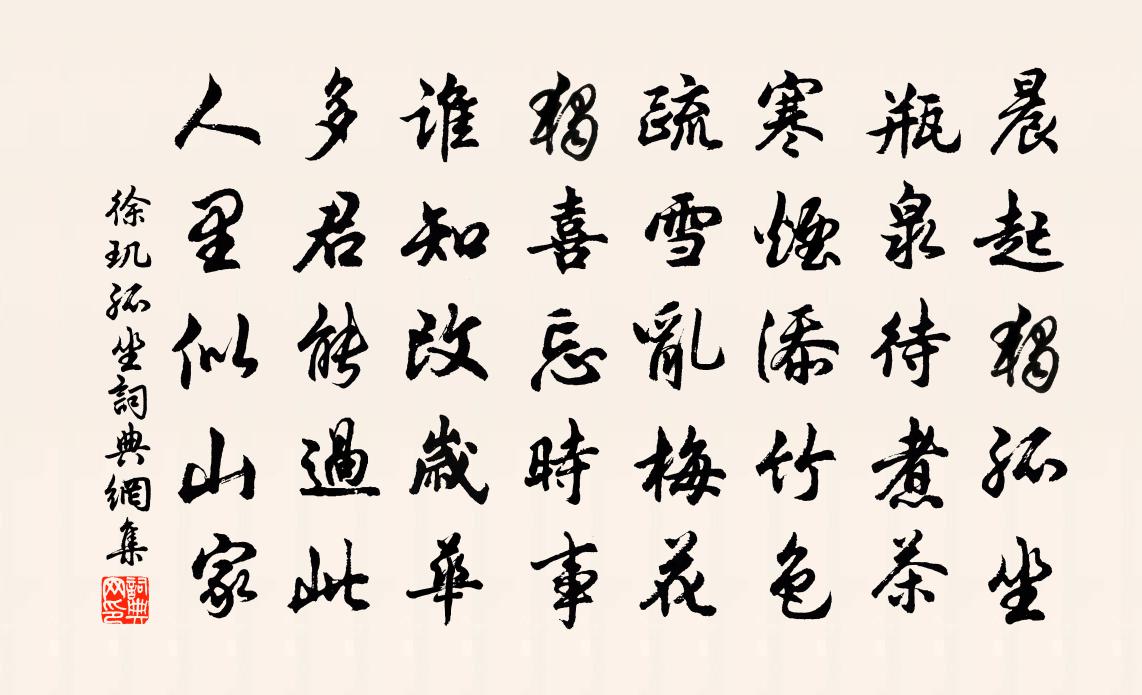 晨起獨孤坐
瓶泉待煮茶
寒煙添竹色
疏雪亂梅花
獨喜忘時事
誰知改歲華
多君能過此
人里似山家
徐玑孤坐詞典網集
詞典
网印